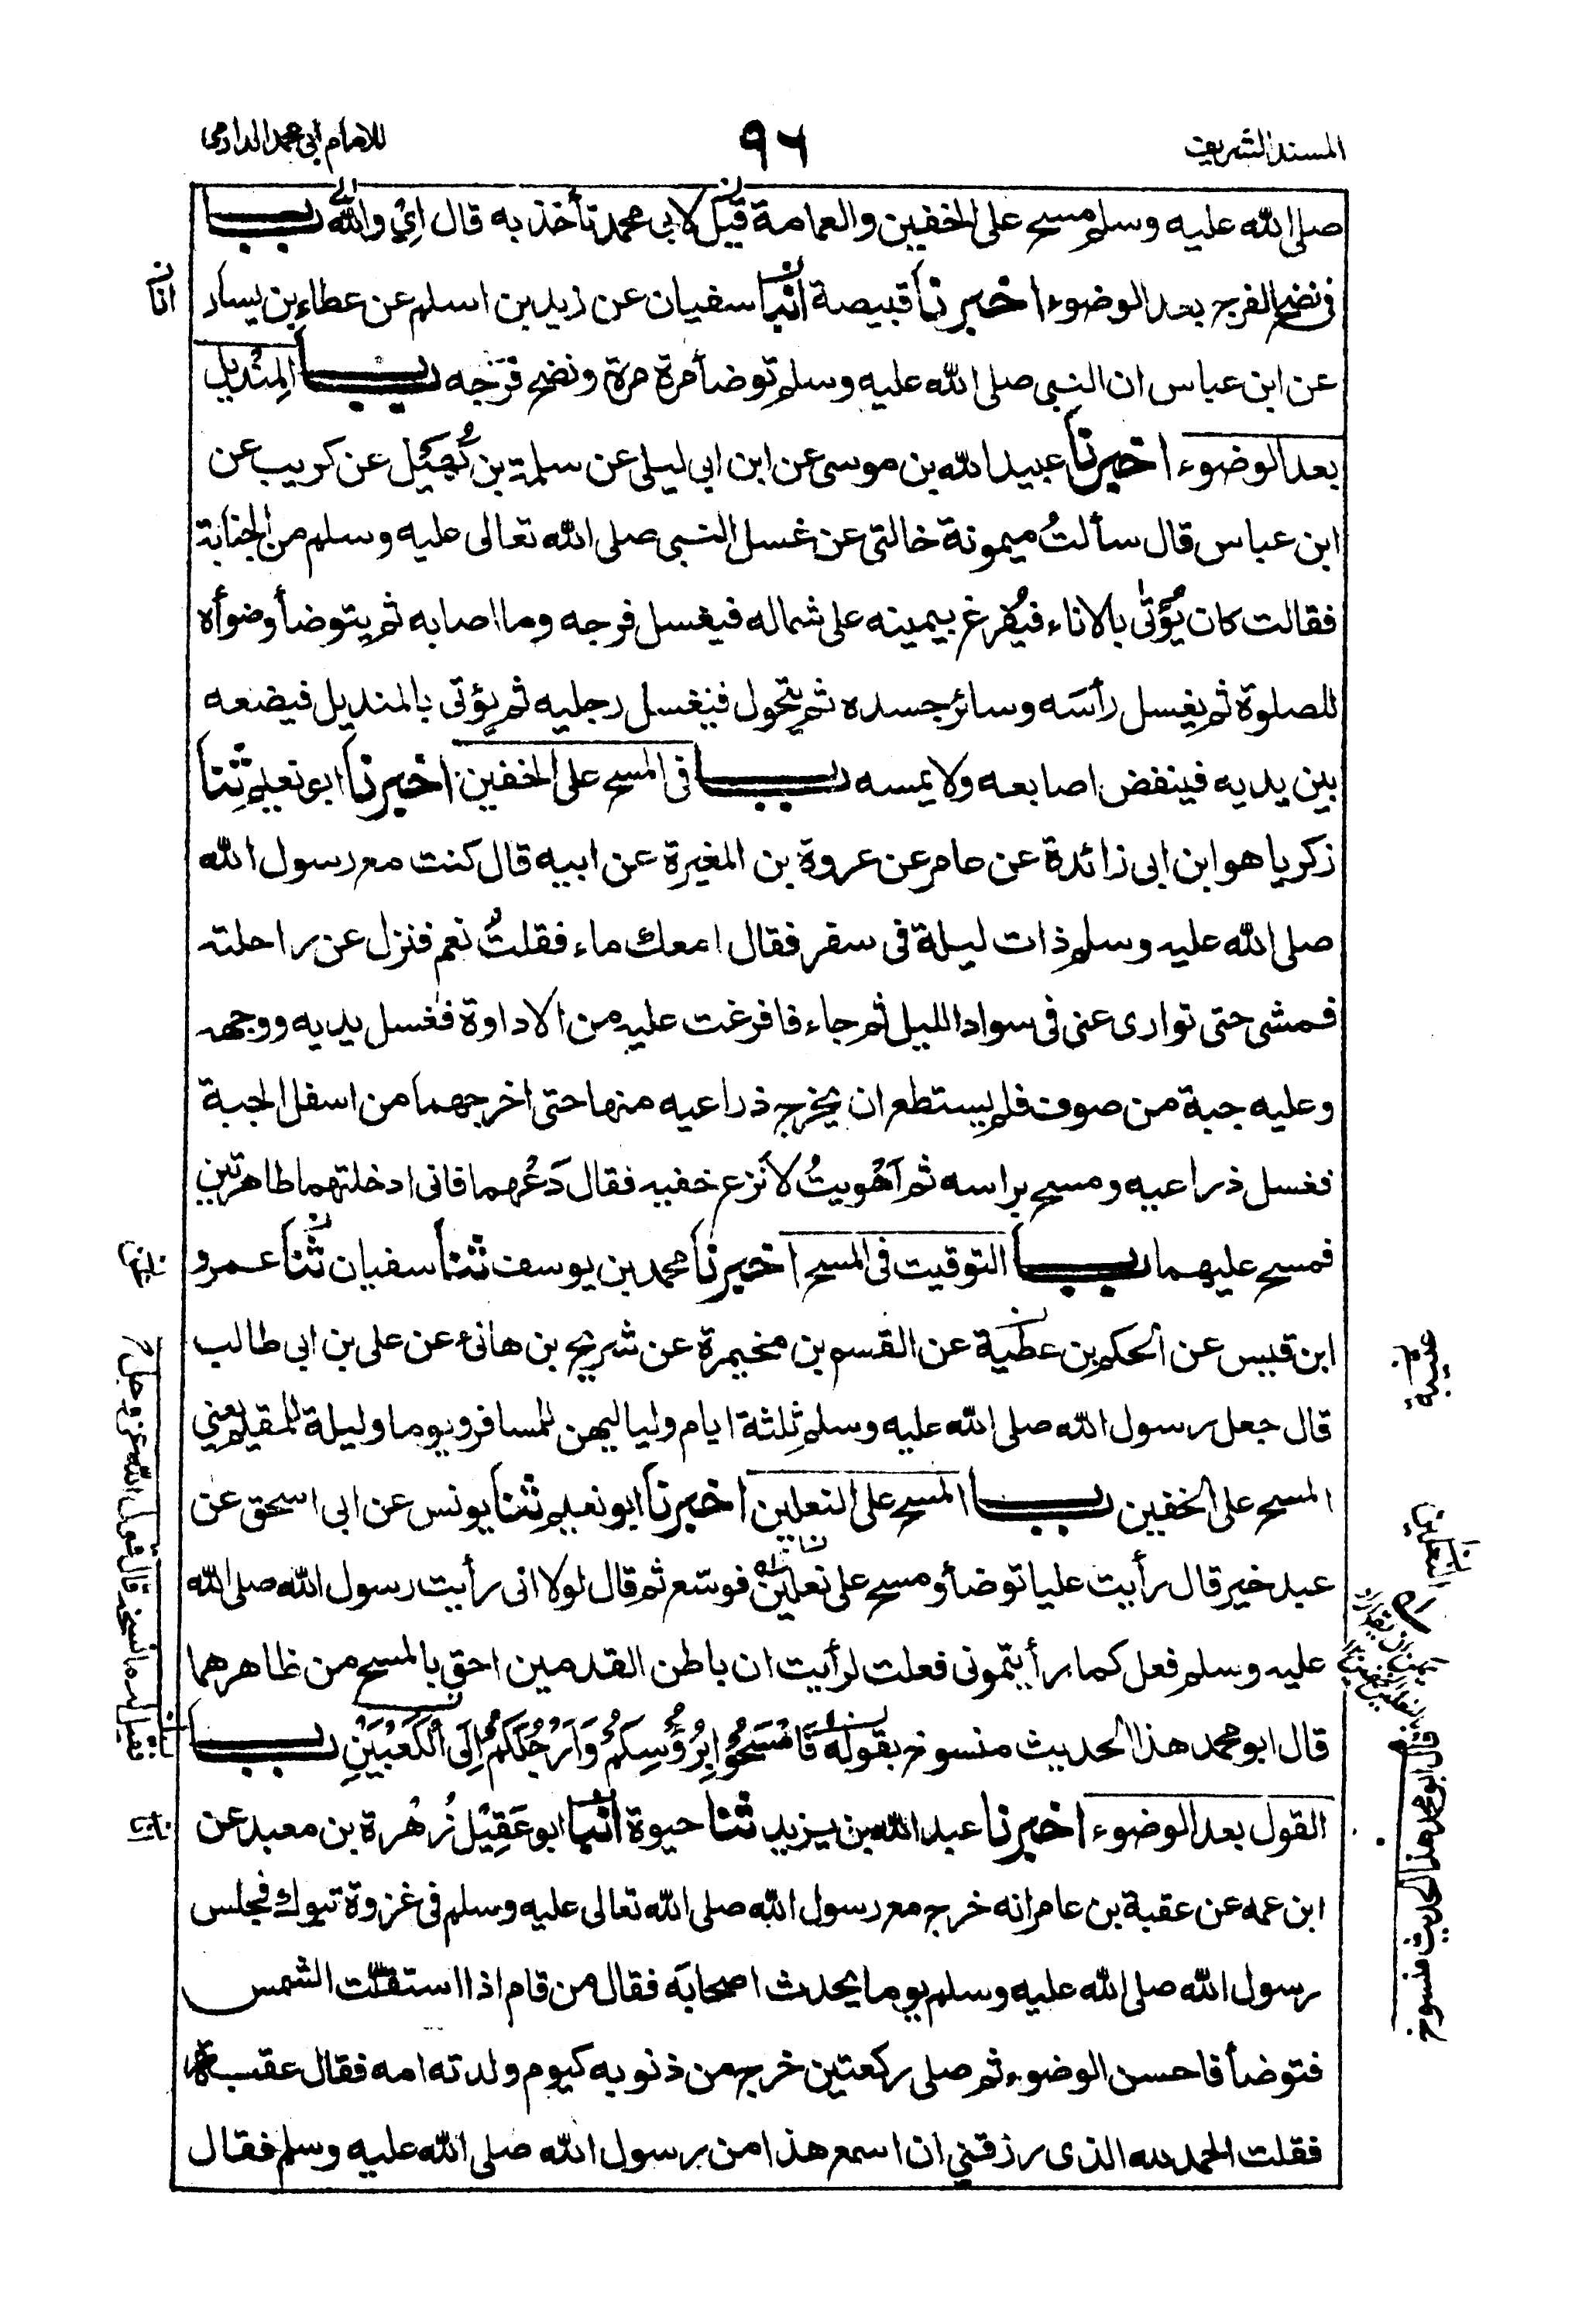 المسند الشريف
٩٦
للامام ابي محمد الدارمي
صلى الله عليه وسلم مسح على الخفين والعمامة قيل لابي محمد تأخذ به قال اِيْ والله باب
في نضح الفرج بعد الوضوء اخبرنا قبيصة انبا سفيان عن زيد بن اسلم عن عطاء بن يسار
عن ابن عباس ان النبي صلى الله عليه وسلم توضأ مرة مرة ونضح فرجه باب المِنْديل
بعد الوضوء اخبرنا عبيد الله بن موسى عن ابن ابي ليلى عن سلمة بن كُهَيْل عن كريب عن
ابن عباس قال سألتُ ميمونة خالتي عن غسل النبي صلى الله تعالى عليه وسلم من الجنابة
فقالت كان يُؤْتى بالاناء فيُفرغ بيمينه على شماله فيغسل فرجه وما اصابه ثم يتوضأ وضوأه
للصلوة ثم يغسل رأسَه وسائر جسده ثم يتحول فيغسل رجليه ثم يؤتى بالمنديل فيضعه
بين يديه فينفض اصابعه ولا يمسه باب في المسح على الخفين اخبرنا ابو نعيم ثنا
زكريا هو ابن ابي زائدة عن عامر عن عروة بن المغيرة عن ابيه قال كنت مع رسول الله
صلى الله عليه وسلم ذات ليلة في سفر فقال امعك ماء فقلتُ نعم فنزل عن راحلته
فمشى حتى توارى عني في سواد الليل ثم جاء فافرغت عليه من الاداوة فغسل يديه ووجهه
وعليه جبة من صوف فلم يستطع ان يخرج ذراعيه منها حتى اخرجهما من اسفل الجبة
فغسل ذراعيه ومسح براسه ثم اَهْويتُ لاَنزع خفيه فقال دَعْهما فاني ادخلتهما طاهرتين
فمسح عليهما باب التوقيت في المسح اخبرنا محمد بن يوسف ثنا سفيان ثنا عمرو
ابن قيس عن الحكم بن عطية عن القسم بن مخيمرة عن شريح بن هانئ عن علي بن ابي طالب
قال جعل رسول الله صلى الله عليه وسلم ثلثة ايام ولياليهن للمسافر ويوما وليلة للمقيم يعني
المسح على الخفين باب المسح على النعلين اخبرنا ابو نعيم ثنا يونس عن ابي اسحق عن
عبد خير قال رأيت عليا توضأ ومسح على نعلين فوسّع ثم قال لولا اني رأيت رسول الله صلى الله
عليه وسلم فعل كما رأيتموني فعلت لرأيت ان باطن القدمين احق بالمسح من ظاهرهما
قال ابو محمد هذا الحديث منسوخ بقوله فَامْسَحُوْا بِرُؤُسِكُمْ وَاَرْجُلَكُمْ اِلَى الْكَعْبَيْنِ باب
القول بعد الوضوء اخبرنا عبد الله بن يزيد ثنا حيوة انبا ابو عَقِيْل زُهْرة بن معبد عن
ابن عمه عن عقبة بن عامر انه خرج مع رسول الله صلى الله تعالى عليه وسلم في غزوة تبوك فجلس
رسول الله صلى الله عليه وسلم يوما يحدث اصحابَه فقال من قام اذا استقلّت الشمس
فتوضأ فاحسن الوضوء ثم صلى ركعتين خرج من ذنوبه كيوم ولدته امه فقال عقبة
فقلت الحمد لله الذي رزقني ان اسمع هذا من رسول الله صلى الله عليه وسلم فقال
انا
عتيبة
النعلين
قال ابو محمد هذا الحديث منسوخ